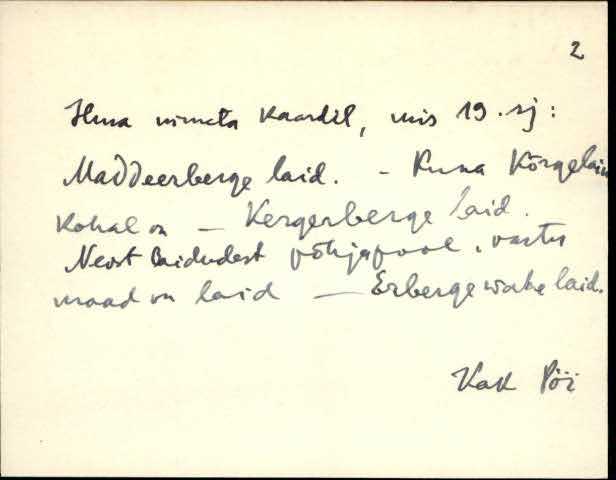 2
Ilma nimeta kaardil, mis 19. sj:
Maddeerberge laid. - Kuna Kõrgelaiu
kohal on — Kergerberge laid.
Neist laidudest põhjapool, vastu
maad on laid — Erbergewahe laid.
Kak Pöi